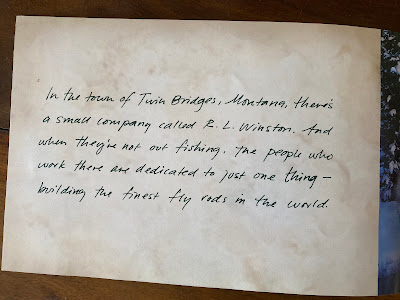 In the town of Twin Bridges, Montana, there's
a small company called R. L. Winston. And
when they're not out fishing, The people who
work there are dedicated to just one thing–
building the finest fly rods in the world.